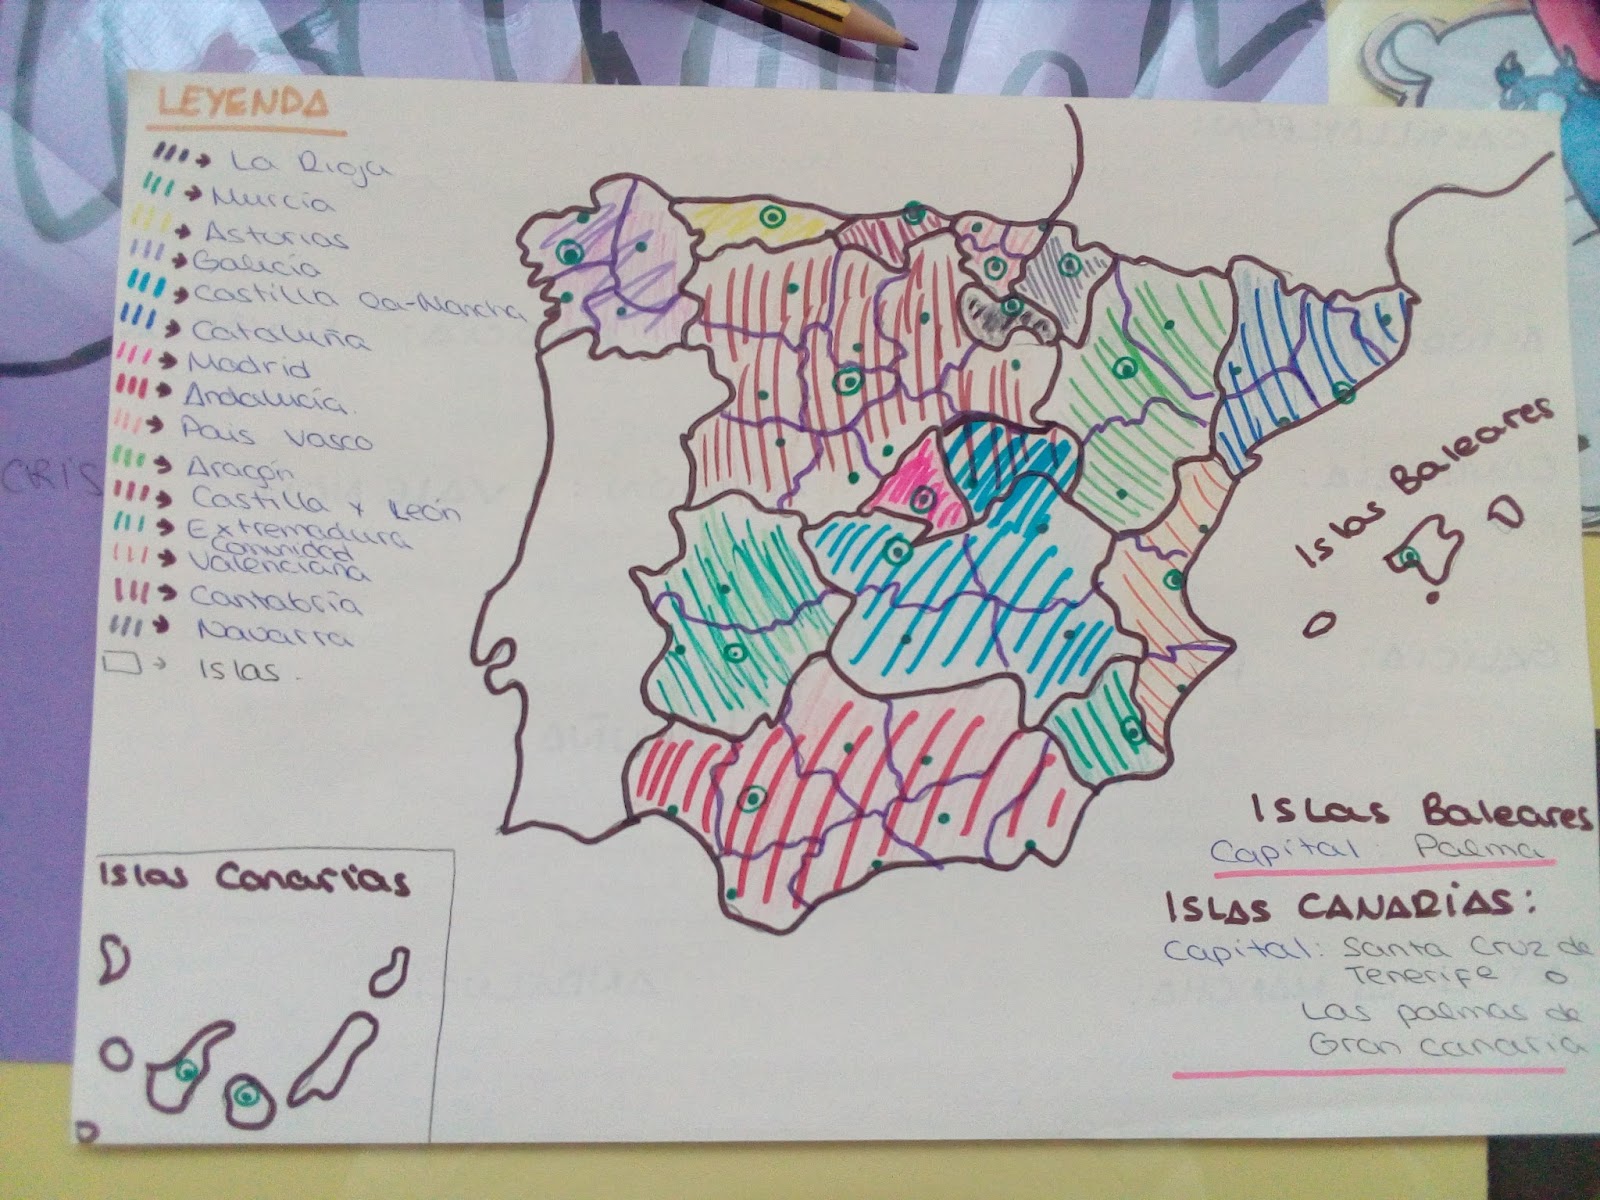 LEYENDA
La Rioja
Murcia
Asturias
Galicia
Castilla La-Mancha
Cataluña
Madrid
Andalucía.
Pais Vasco
Aragón
Castilla y León
Extremadura
Comunidad
Valenciana
Cantabria
Navarra
Islas.
CRIS
Islas Baleares
Islas Canarias
Islas Baleares
Capital: Palma
ISLAS CANARIAS:
Capital: Santa Cruz de
Tenerife o
Las palmas de
Gran Canaria